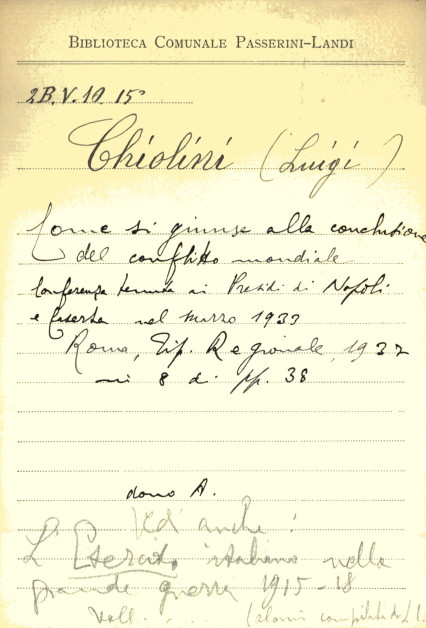 BIBLIOTECA COMUNALE PASSERINI-LANDI
2B.V.10.15
Chiolini (Luigi)
Come si giunse alla conclusione
del conflitto mondiale
Conferenza tenuta ai Presidi di Napoli
e Caserta nel marzo 1933
Roma, Tip. Regionale, 1937
in 8 di pp. 38
dono A.
Vedi anche:
L'Esercito italiano nella
grande guerra 1915-18
Voll. ....